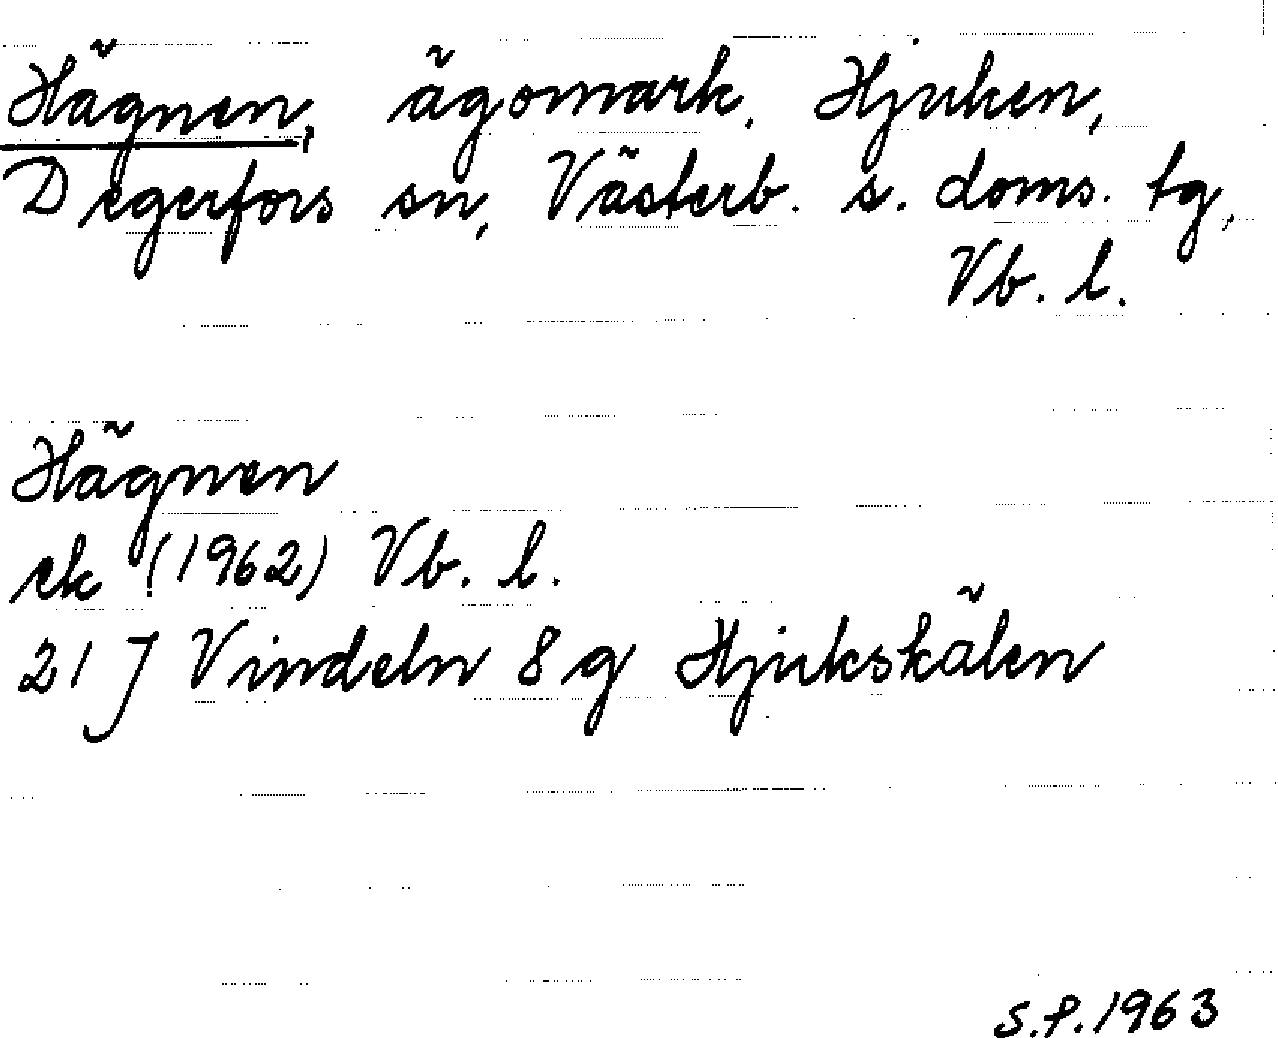 Hägnen, ägomark, Hjuken,
Degerfors sn, Västerb. s. doms. tg,
Vb. l.
Hägnen
ek (1962) Vb. l.
21 J Vindeln 8 g Hjukskälen
S.P. 1963